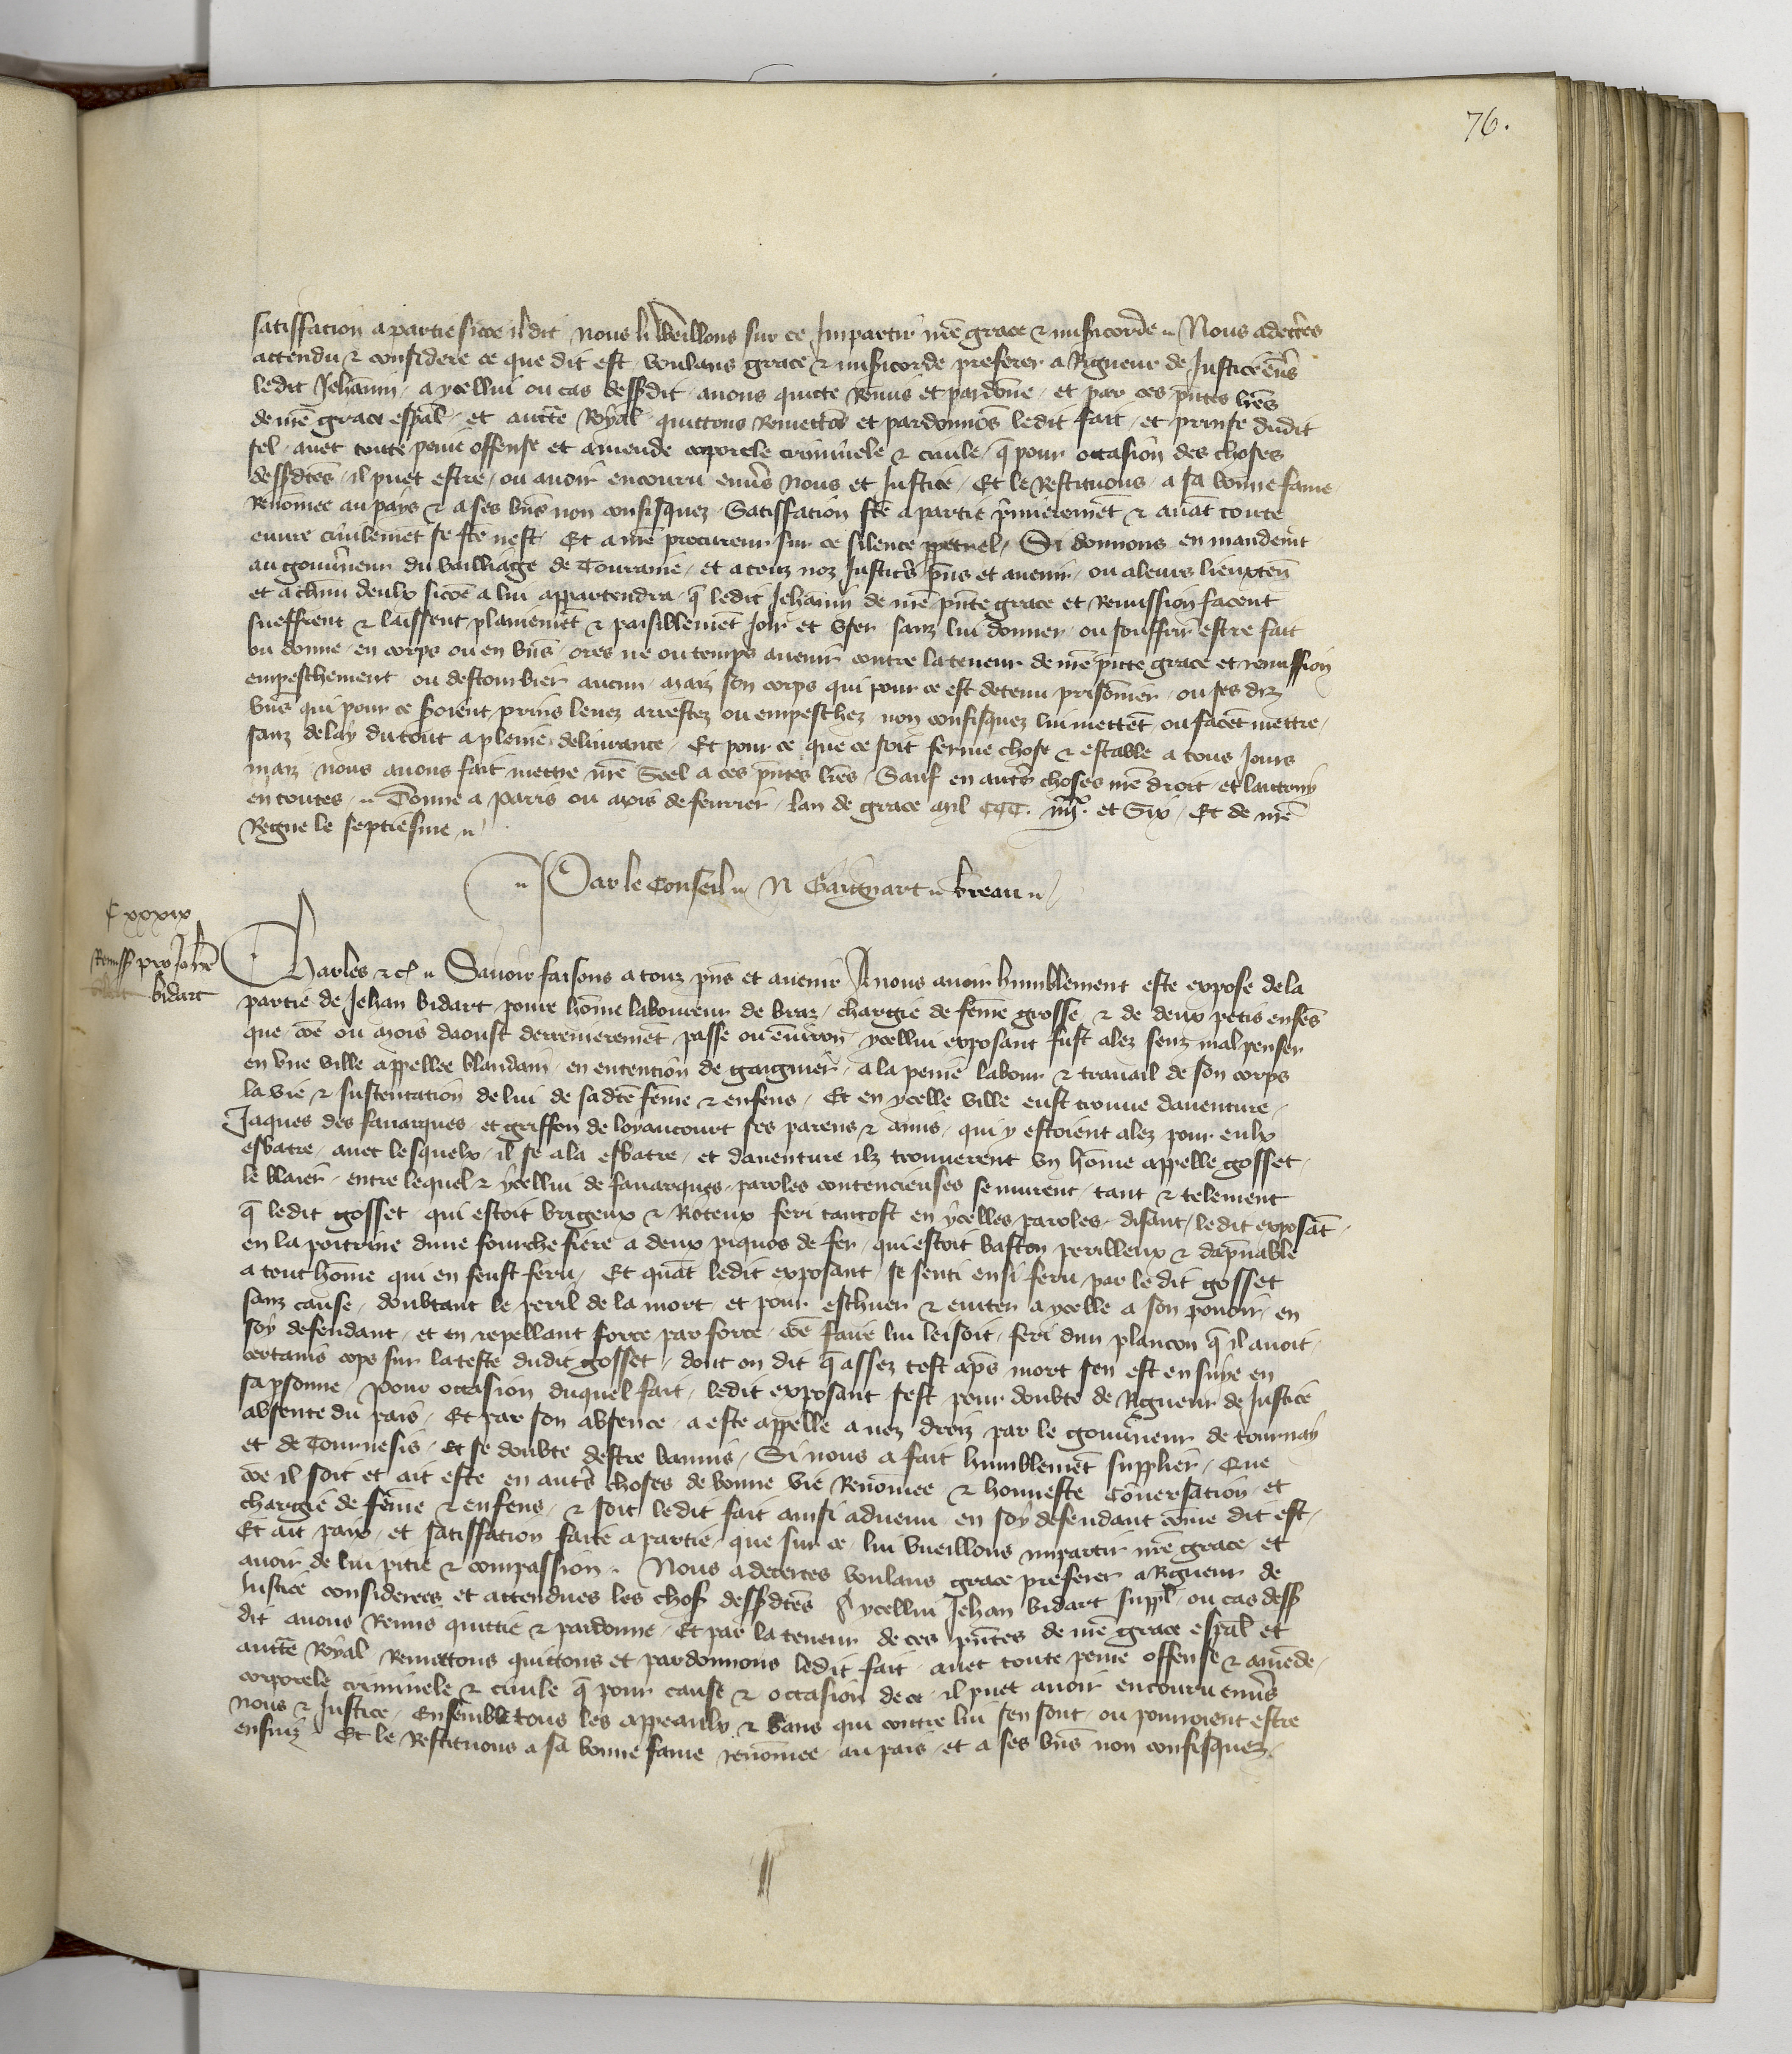 76.
satiffacion a partie sicōe il dit nous li vueillons sur ce Impartir nr̄e grace & misericorde Nous adecertes
attendu & considere ce que dit est voulans grace & misericorde preferer a Rigueur de Justice enūs
ledit Jehannin a ycellui ou cas dessdit auons quitte Remis et pardonne et par ces pn̄tes lr̄es
de nr̄e grace esp̄al et auctē Royal quittons Remettōs et pardonnōs ledit fait et prinse dudit
sel auec toute peine offense et amende corporele criminele & ciuile q̄ pour occasion des choses
dessdictes il puet estre ou auoir encouru enuers nous et Justice Et le Restituons a sa bonne fame
Renōmee au pays & a ses biēs non confisquez Satiffacion fcē a partie p̄mierement & auāt toute
euure ciuilemēt se fcē nest Et a nr̄e procureur sur ce silence ppetuel Si donnons en mandemt
au gouuneur du bailliage de Touraine et a touz noz Justicēs pn̄s et auenir ou a leurs lieuxten̄
et a chūn deulx sicōe a lui appartendra q̄ ledit Jehannin de nr̄e pn̄te grace et Remission facent
sueffrent & laissent plainemēt & paisiblement Joir et vser sanz lui donner ou souffrir estre fait
ou donne en corps ou en biēs ores ne ou temps auenir contre la teneur de nr̄e pn̄te grace et remission
empeschement ou destourbier aucun maiz son corps qui pour ce est detenu prisonnier ou ses diz
biēs qui pour ce soient prins leuez arrestez ou empeschez non confisquez lui mettēt ou facēt mettre
sanz delay du tout a pleine deliurance Et pour ce que ce soit ferme chose & estable a tous Jours
maiz nous auons fait mettre nr̄e Seel a ces pn̄tes lr̄es Sauf en autres choses nr̄e droit et lautruy
en toutes Donne a Paris ou mois de feurier lan de grace mil CCC. iiijxx. et Six Et de nr̄e
Regne le septiesme
Par le Conseil N Gaignart vreau
C xxxix
Remiss pro Johe
bidart
Charles &c Sauoir faisons a touz pn̄s et auenir A nous auoir humblement este expose de la
partie de Jehan bidart poure hōme laboureur de braz chargie de fēme grosse & de deux petis enfēs
que cōe ou mois daoust derrenierement passe ou enuiron ycellui exposant fust alez senz mal penser
en vne ville appellee blandain en entencion de gaignier a la peine labour & trauail de son corps
la vie & sustentacion de lui de sadcē fēme & enfens Et en ycelle ville eust trouue dauenture
Jaques des fauarques et griffon de loyaucourt ses parens & amis qui y estoient alez pour eulx
esbatre auec lesquelx il se ala esbatre et dauenture ilz trouuerent vn hōme appelle gosset
le blaier entre lequel & ycellui de fauarques paroles contencieuses se murent tant & telement
q̄ ledit gosset qui estoit brigeux & Roteux feri tantost en ycelles paroles disant ledit exposāt
en la poitrine dune fourche fiere a deux piquos de fer qui estoit baston perilleux & dāpnable
a tout hōme qui en feust feru Et quāt ledit exposant se senti ensi feru par le dit gosset
sanz cause doubtant le peril de la mort et pour eschuer & euiter a ycelle a son pouoir en
soy defendant et en repellant force par force cōe faire lui leisoit feri dun plancon q̄ il auoit
certains cops sur la teste dudit gosset dont on dit q̄ assez tost aps̄ mort sen est ensuye en
sa psonne Pour occasion duquel fait ledit exposant sest pour doubte de Rigueur de Justice
absente du pais Et par son absence a este appelle a nez droiz par le gouuneur de tournay
et de Tournesis Et se doubte destre bannis Si nous a fait humblement supplier Que
cōe il soit et ait este en autres choses de bonne vie Renōmee & honneste Conuersacion et
chargie de fēme & enfens & soit ledit fait ainsi aduenu en soy defendant cōme dit est
Et ait paix et satiffacion faite a partie que sur ce lui vueillons impartir nr̄e grace et
auoir de lui pitie & compassion Nous adecertes voulans grace preferer a Rigueur de
Justice considerees et attendues les chos̄ dessdtēs A ycellui Jehan bidart suppl̄ ou cas dess
dit auons Remis quittie & pardonne Et par la teneur de ces pn̄tes de nr̄e grace esp̄al et
auctē Royal Remettons quittons et pardonnons ledit fait auec toute peine offense & amēde
corporele criminele & ciuile q̄ pour cause & occasion de ce il puet auoir encouru enuers
nous & Justice Ensemble tous les appeaulx & bans qui contre lui sen sont ou pourroient estre
ensuiz Et le Restituons a sa bonne fame renōmee au pais et a ses biēs non confisquez